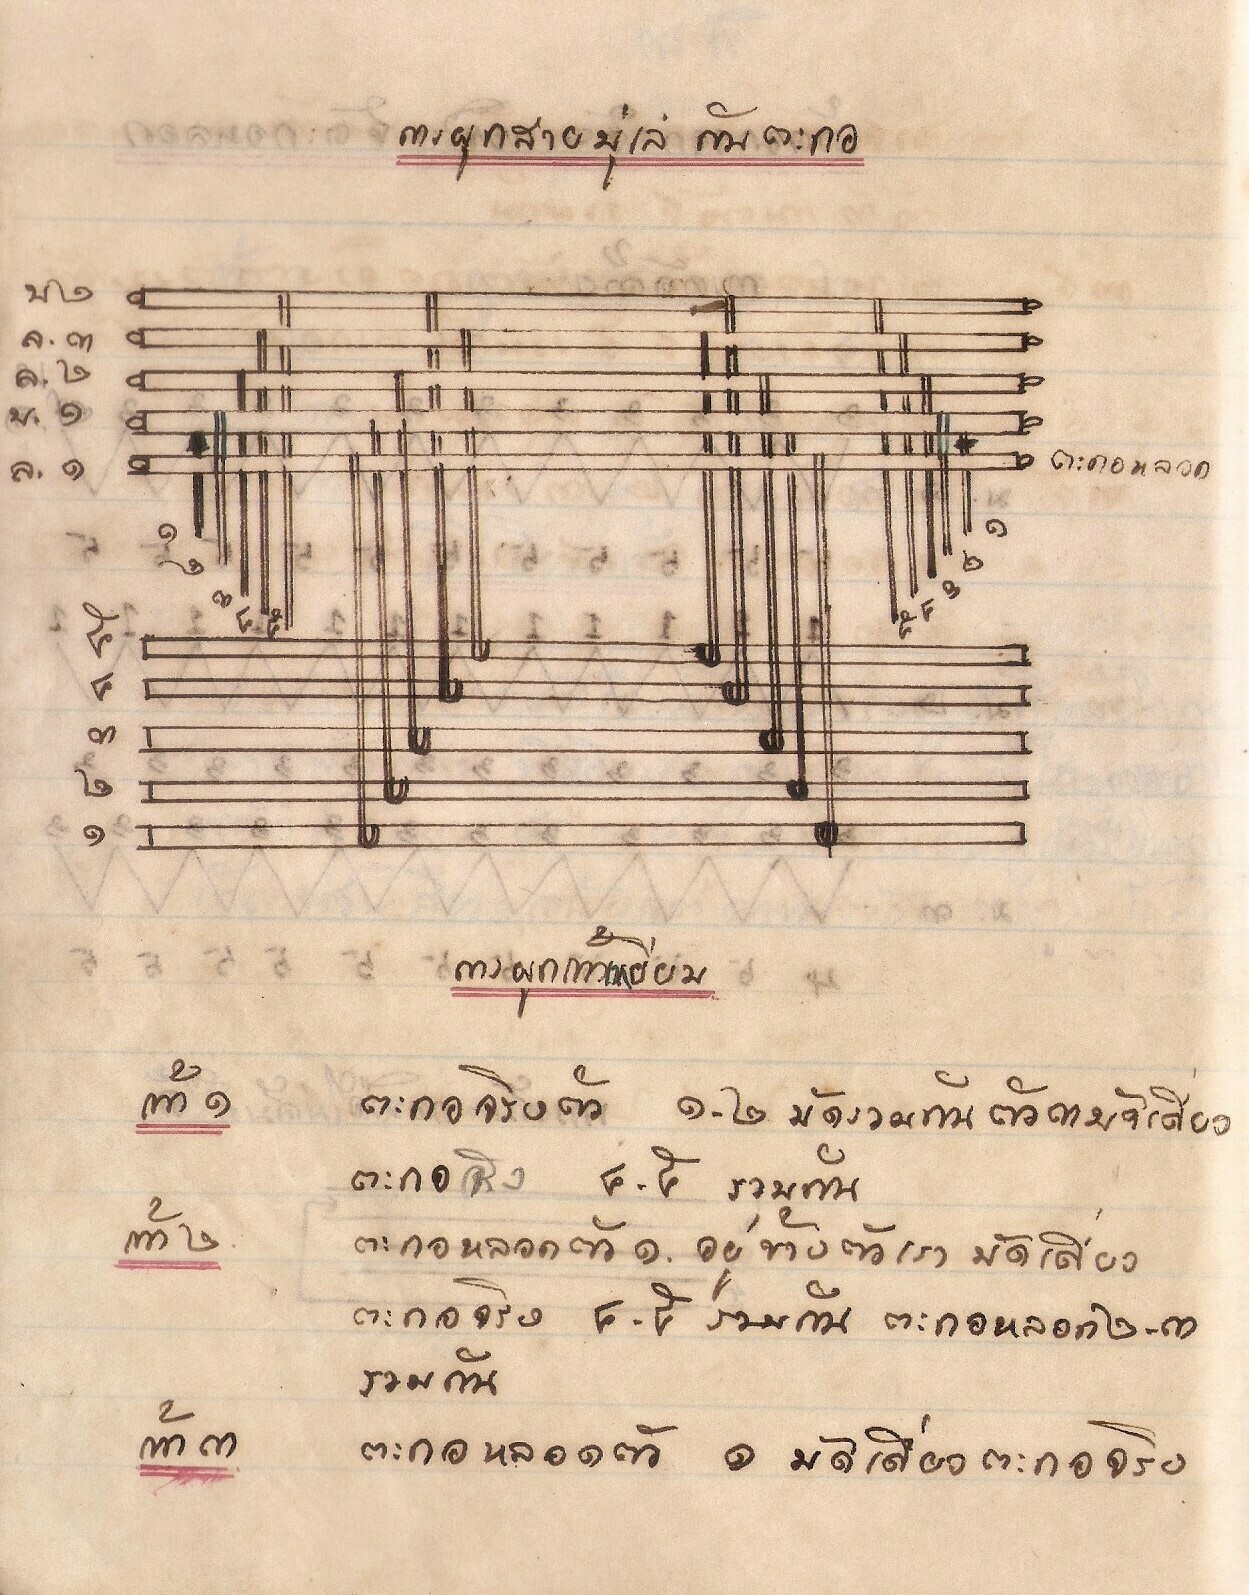 การผูกสายมู่เล่ กับตะกอ
บ ๒
ล. ๓
ล. ๒
บ. ๑
ล. ๑
ตะกอหลอก
๑
๒
๓
๔
๕
๑
๒
๓
๔
๕
๕
๔
๓
๒
๑
การผูกเท้าเหยียบ
เท้า ๑ ตะกอจริงตัว ๑-๒ มัดรวมกัน ตัว๓มัดเดี่ยว
ตะกอจริง ๔-๕ รวมกัน
เท้า ๒ ตะกอหลอกตัว ๑. อยู่ข้างตัวเรา มัดเดี่ยว
ตะกอจริง ๔-๕ รวมกัน ตะกอหลอก๒-๓
รวมกัน
เท้า ๓ ตะกอหลอกตัว ๑ มัดเดี่ยวตะกอจริง